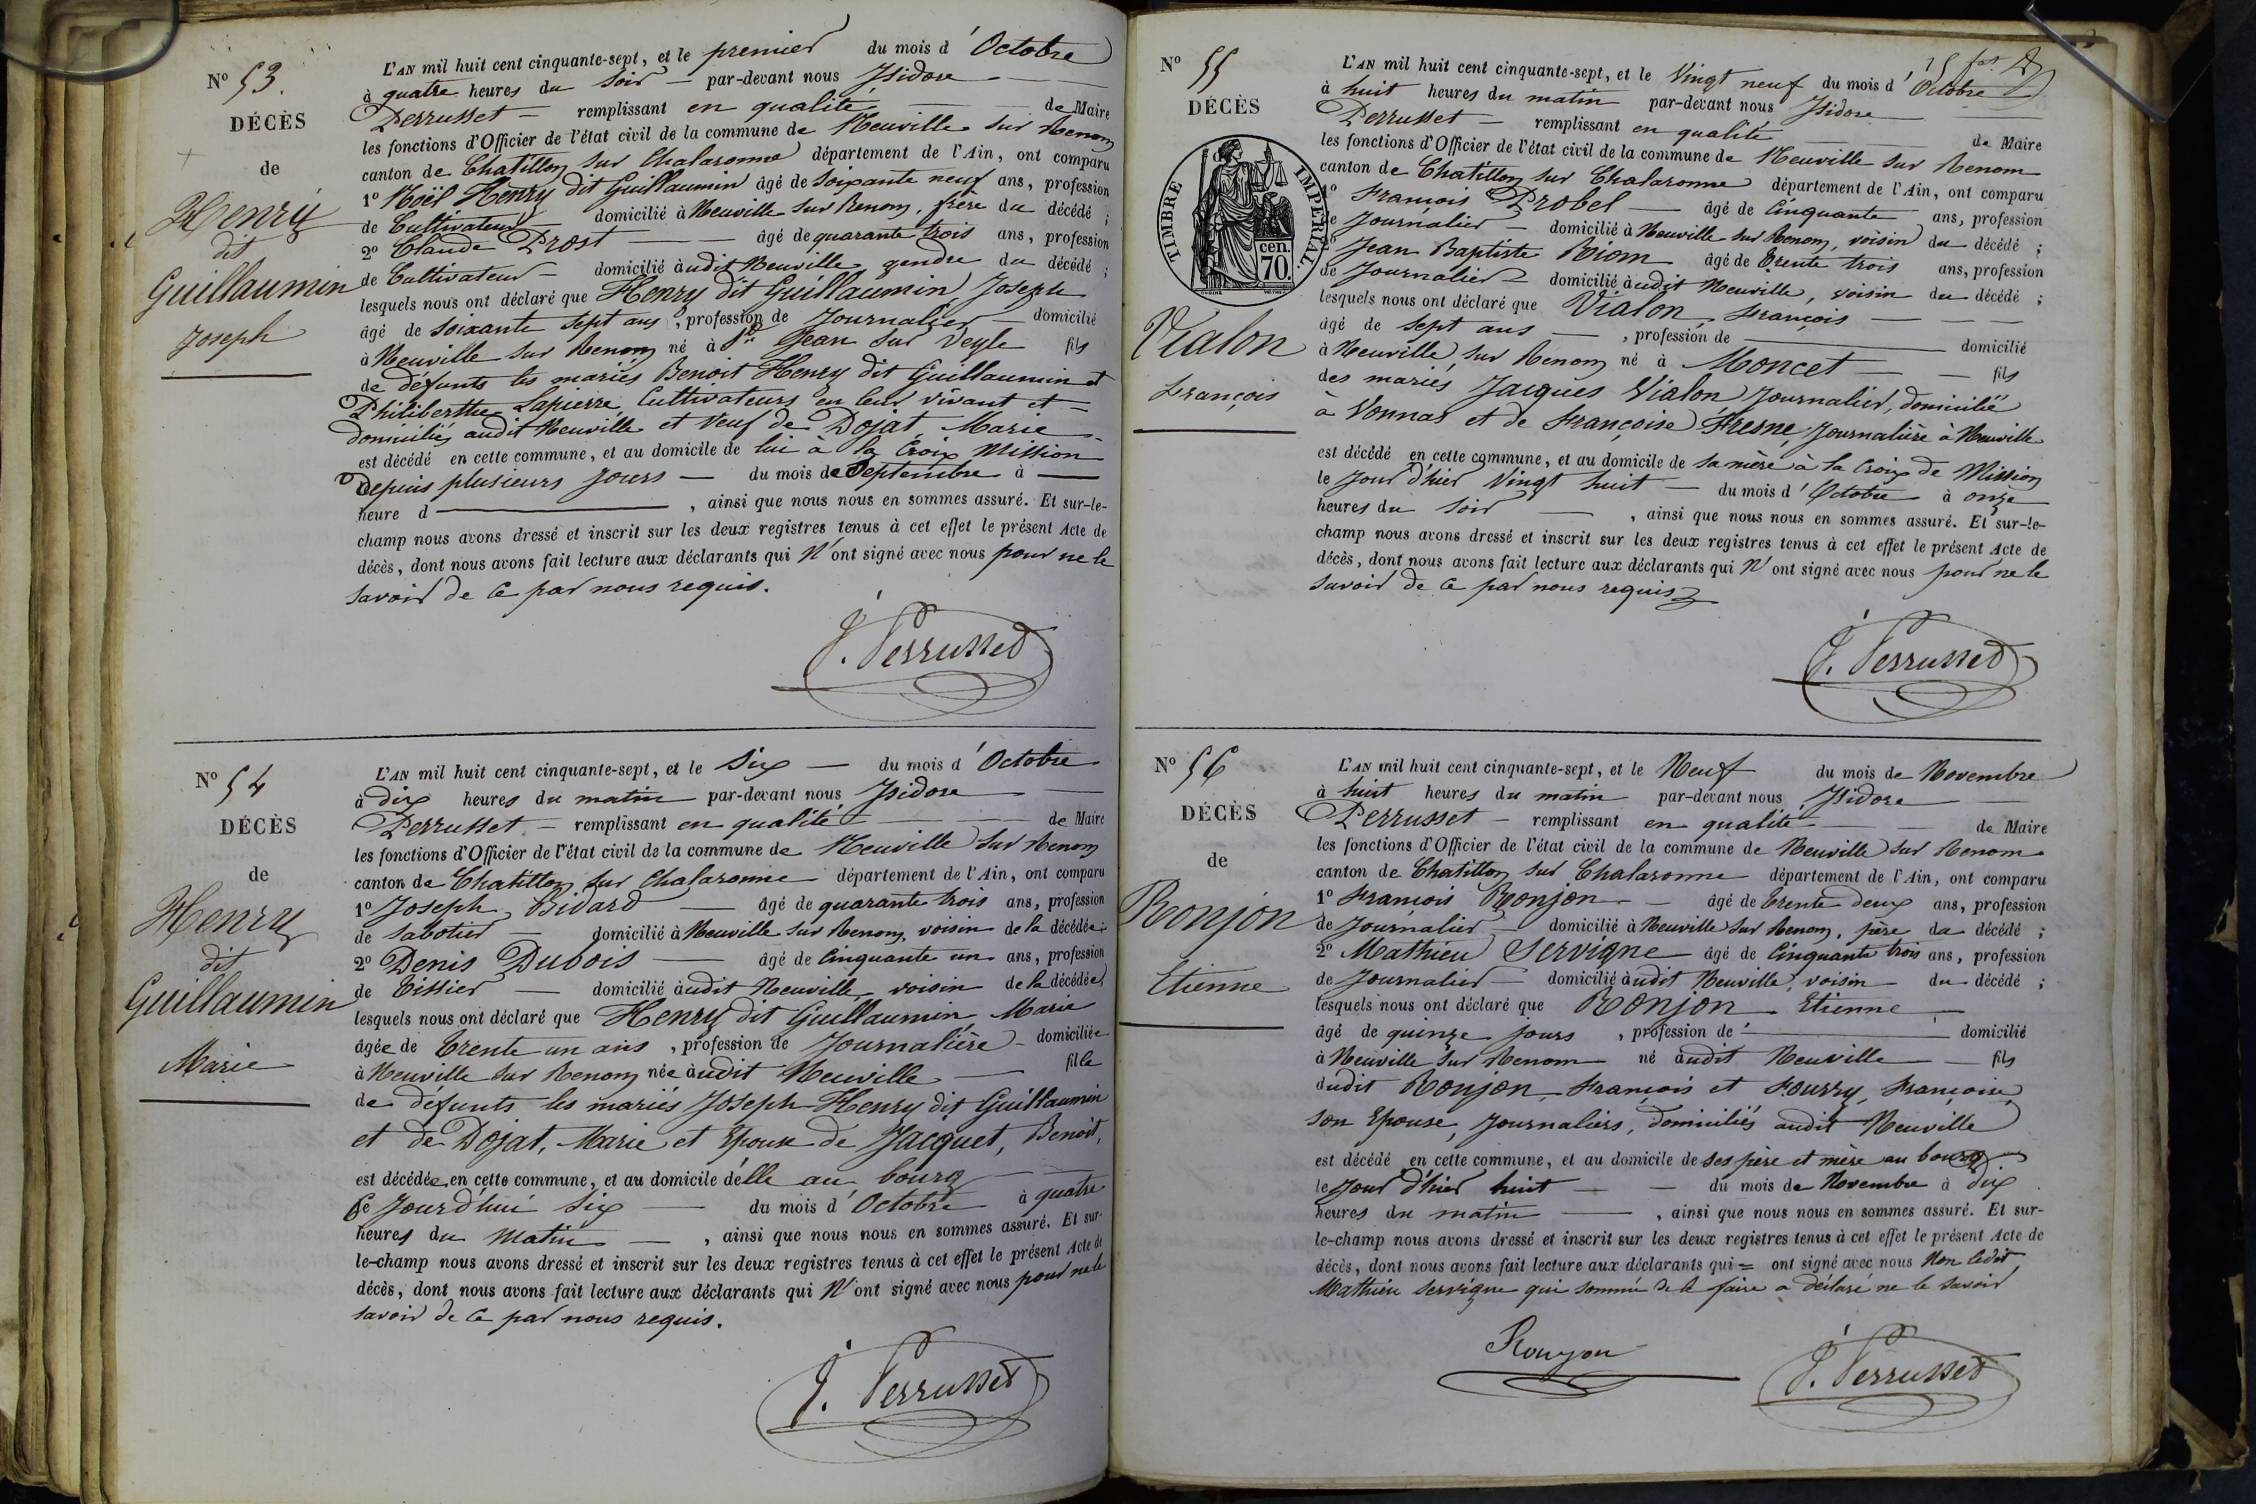 N° 53.
DÉCÈS
de
Henry
dit
Guillaumin
Joseph
L'AN mil huit cent cinquante-sept, et le premier du mois d'Octobre
à quatre heures du soir par-devant nous Isidore
Perrusset remplissant en qualité de Maire
les fonctions d'Officier de l'état civil de la commune de Neuville sur Renom
canton de Chatillon sur Chalaronne département de l'Ain, ont comparu
1° Noël Henry dit Guillaumin âgé de soixante neuf ans, profession
de Cultivateur domicilié à Neuville sur Renom, frère du décédé ;
2° Claude Prost âgé de quarante trois ans, profession
de Cultivateur domicilié audit Neuville gendre du décédé ;
lesquels nous ont déclaré que Henry dit Guillaumin Joseph
âgé de soixante sept ans, profession de Journalier domicilié
à Neuville sur Renom né à St Jean sur Veyle fils
de défunts les mariés Benoit Henry dit Guillaumin et
Philiberthe Lapierre, Cultivateurs en leur vivant et
domiciliés audit Neuville et veuf de Dojat Marie
est décédé en cette commune, et au domicile de lui à la Croix Mission
Depuis plusieurs jours du mois de Septembre à
heure d , ainsi que nous nous en sommes assuré. Et sur-le-
champ nous avons dressé et inscrit sur les deux registres tenus à cet effet le présent Acte de
décès, dont nous avons fait lecture aux déclarants qui n'ont signé avec nous pour ne le
savoir de ce par nous requis.
J. Perrusset
N° 54
DÉCÈS
de
Henry
dit
Guillaumin
Marie
L'AN mil huit cent cinquante-sept, et le six du mois d'Octobre
à dix heures du matin par-devant nous Isidore
Perrusset remplissant en qualité de Maire
les fonctions d'Officier de l'état civil de la commune de Neuville sur Renom
canton de Chatillon sur Chalaronne département de l'Ain, ont comparu
1° Joseph Bidard âgé de quarante trois ans, profession
de sabotier domicilié à Neuville sur Renom, voisin de la décédée ;
2° Denis Dubois âgé de Cinquante un ans, profession
de Tissier domicilié audit Neuville voisin de la décédée ;
lesquels nous ont déclaré que Henry dit Guillaumin Marie
âgée de trente un ans, profession de Journalière domiciliée
à Neuville sur Renom née audit Neuville fille
de défunts les mariés Joseph Henry dit Guillaumin
et de Dojat, Marie et Epouse de Jacquet, Benoit,
est décédée en cette commune, et au domicile d'elle au bourg
ce jourd'hui six du mois d'Octobre à quatre
heures du matin , ainsi que nous nous en sommes assuré. Et sur-
le-champ nous avons dressé et inscrit sur les deux registres tenus à cet effet le présent Acte de
décès, dont nous avons fait lecture aux déclarants qui n'ont signé avec nous pour ne le
savoir de ce par nous requis.
J. Perrusset
N° 55
DÉCÈS
TIMBRE IMPÉRIAL.
cen.
70.
Vialon
François
L'AN mil huit cent cinquante-sept, et le Vingt neuf du mois d'Octobre
à huit heures du matin par-devant nous Isidore
Perrusset remplissant en qualité de Maire
les fonctions d'Officier de l'état civil de la commune de Neuville sur Renom
canton de Chatillon sur Chalaronne département de l'Ain, ont comparu
1° François Probel âgé de Cinquante ans, profession
de Journalier domicilié à Neuville sur Renom, voisin du décédé ;
2° Jean Baptiste Riom âgé de trente trois ans, profession
de Journalier domicilié audit Neuville, voisin du décédé ;
lesquels nous ont déclaré que Vialon François
âgé de sept ans , profession de domicilié
à Neuville sur Renom né à Moncet fils
des mariés Jacques Vialon Journalier, domicilié
à Vonnas et de Françoise Fresne, Journalière à Neuville
est décédé en cette commune, et au domicile de sa mère à la Croix de Mission
le jour d'hier Vingt huit du mois d'Octobre à onze
heures du soir , ainsi que nous nous en sommes assuré. Et sur-le-
champ nous avons dressé et inscrit sur les deux registres tenus à cet effet le présent Acte de
décès, dont nous avons fait lecture aux déclarants qui n'ont signé avec nous pour ne le
savoir de ce par nous requis
J. Perrusset
N° 56
DÉCÈS
de
Ronjon
Etienne
L'AN mil huit cent cinquante-sept, et le Neuf du mois de Novembre
à huit heures du matin par-devant nous Isidore
Perrusset remplissant en qualité de Maire
les fonctions d'Officier de l'état civil de la commune de Neuville sur Renom
canton de Chatillon sur Chalaronne département de l'Ain, ont comparu
1° François Ronjon âgé de trente deux ans, profession
de Journalier domicilié à Neuville sur Renom, père du décédé ;
2° Mathieu Servigne âgé de Cinquante trois ans, profession
de Journalier domicilié audit Neuville, voisin du décédé ;
lesquels nous ont déclaré que Ronjon Etienne
âgé de quinze jours , profession de domicilié
à Neuville sur Renom né audit Neuville fils
dudit Ronjon François et Fourry, Françoise,
son Epouse, Journaliers, domiciliés audit Neuville
est décédé en cette commune, et au domicile de ses père et mère au bourg
le jour d'hier huit du mois de Novembre à dix
heures du matin , ainsi que nous nous en sommes assuré. Et sur-
le-champ nous avons dressé et inscrit sur les deux registres tenus à cet effet le présent Acte de
décès, dont nous avons fait lecture aux déclarants qui ont signé avec nous Non ledit
Mathieu Servigne qui sommé de le faire a déclaré ne le savoir
Ronjon
J. Perrusset